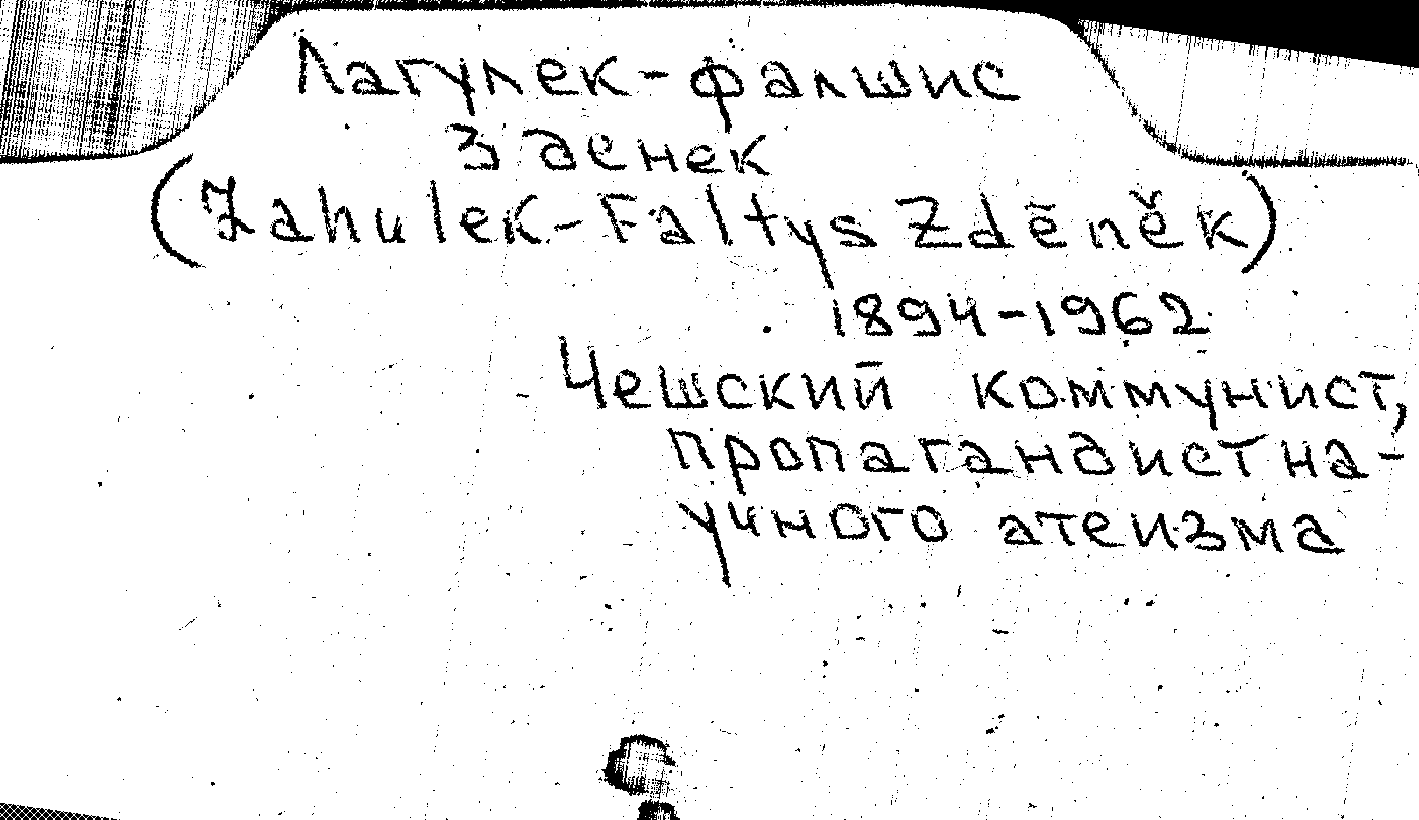 Лагулек-фалшис
Зденек
(Zahulek-Faltys Zdēněk)
1894-1962
Чешский коммунист,
пропагандист на-
учного атеизма